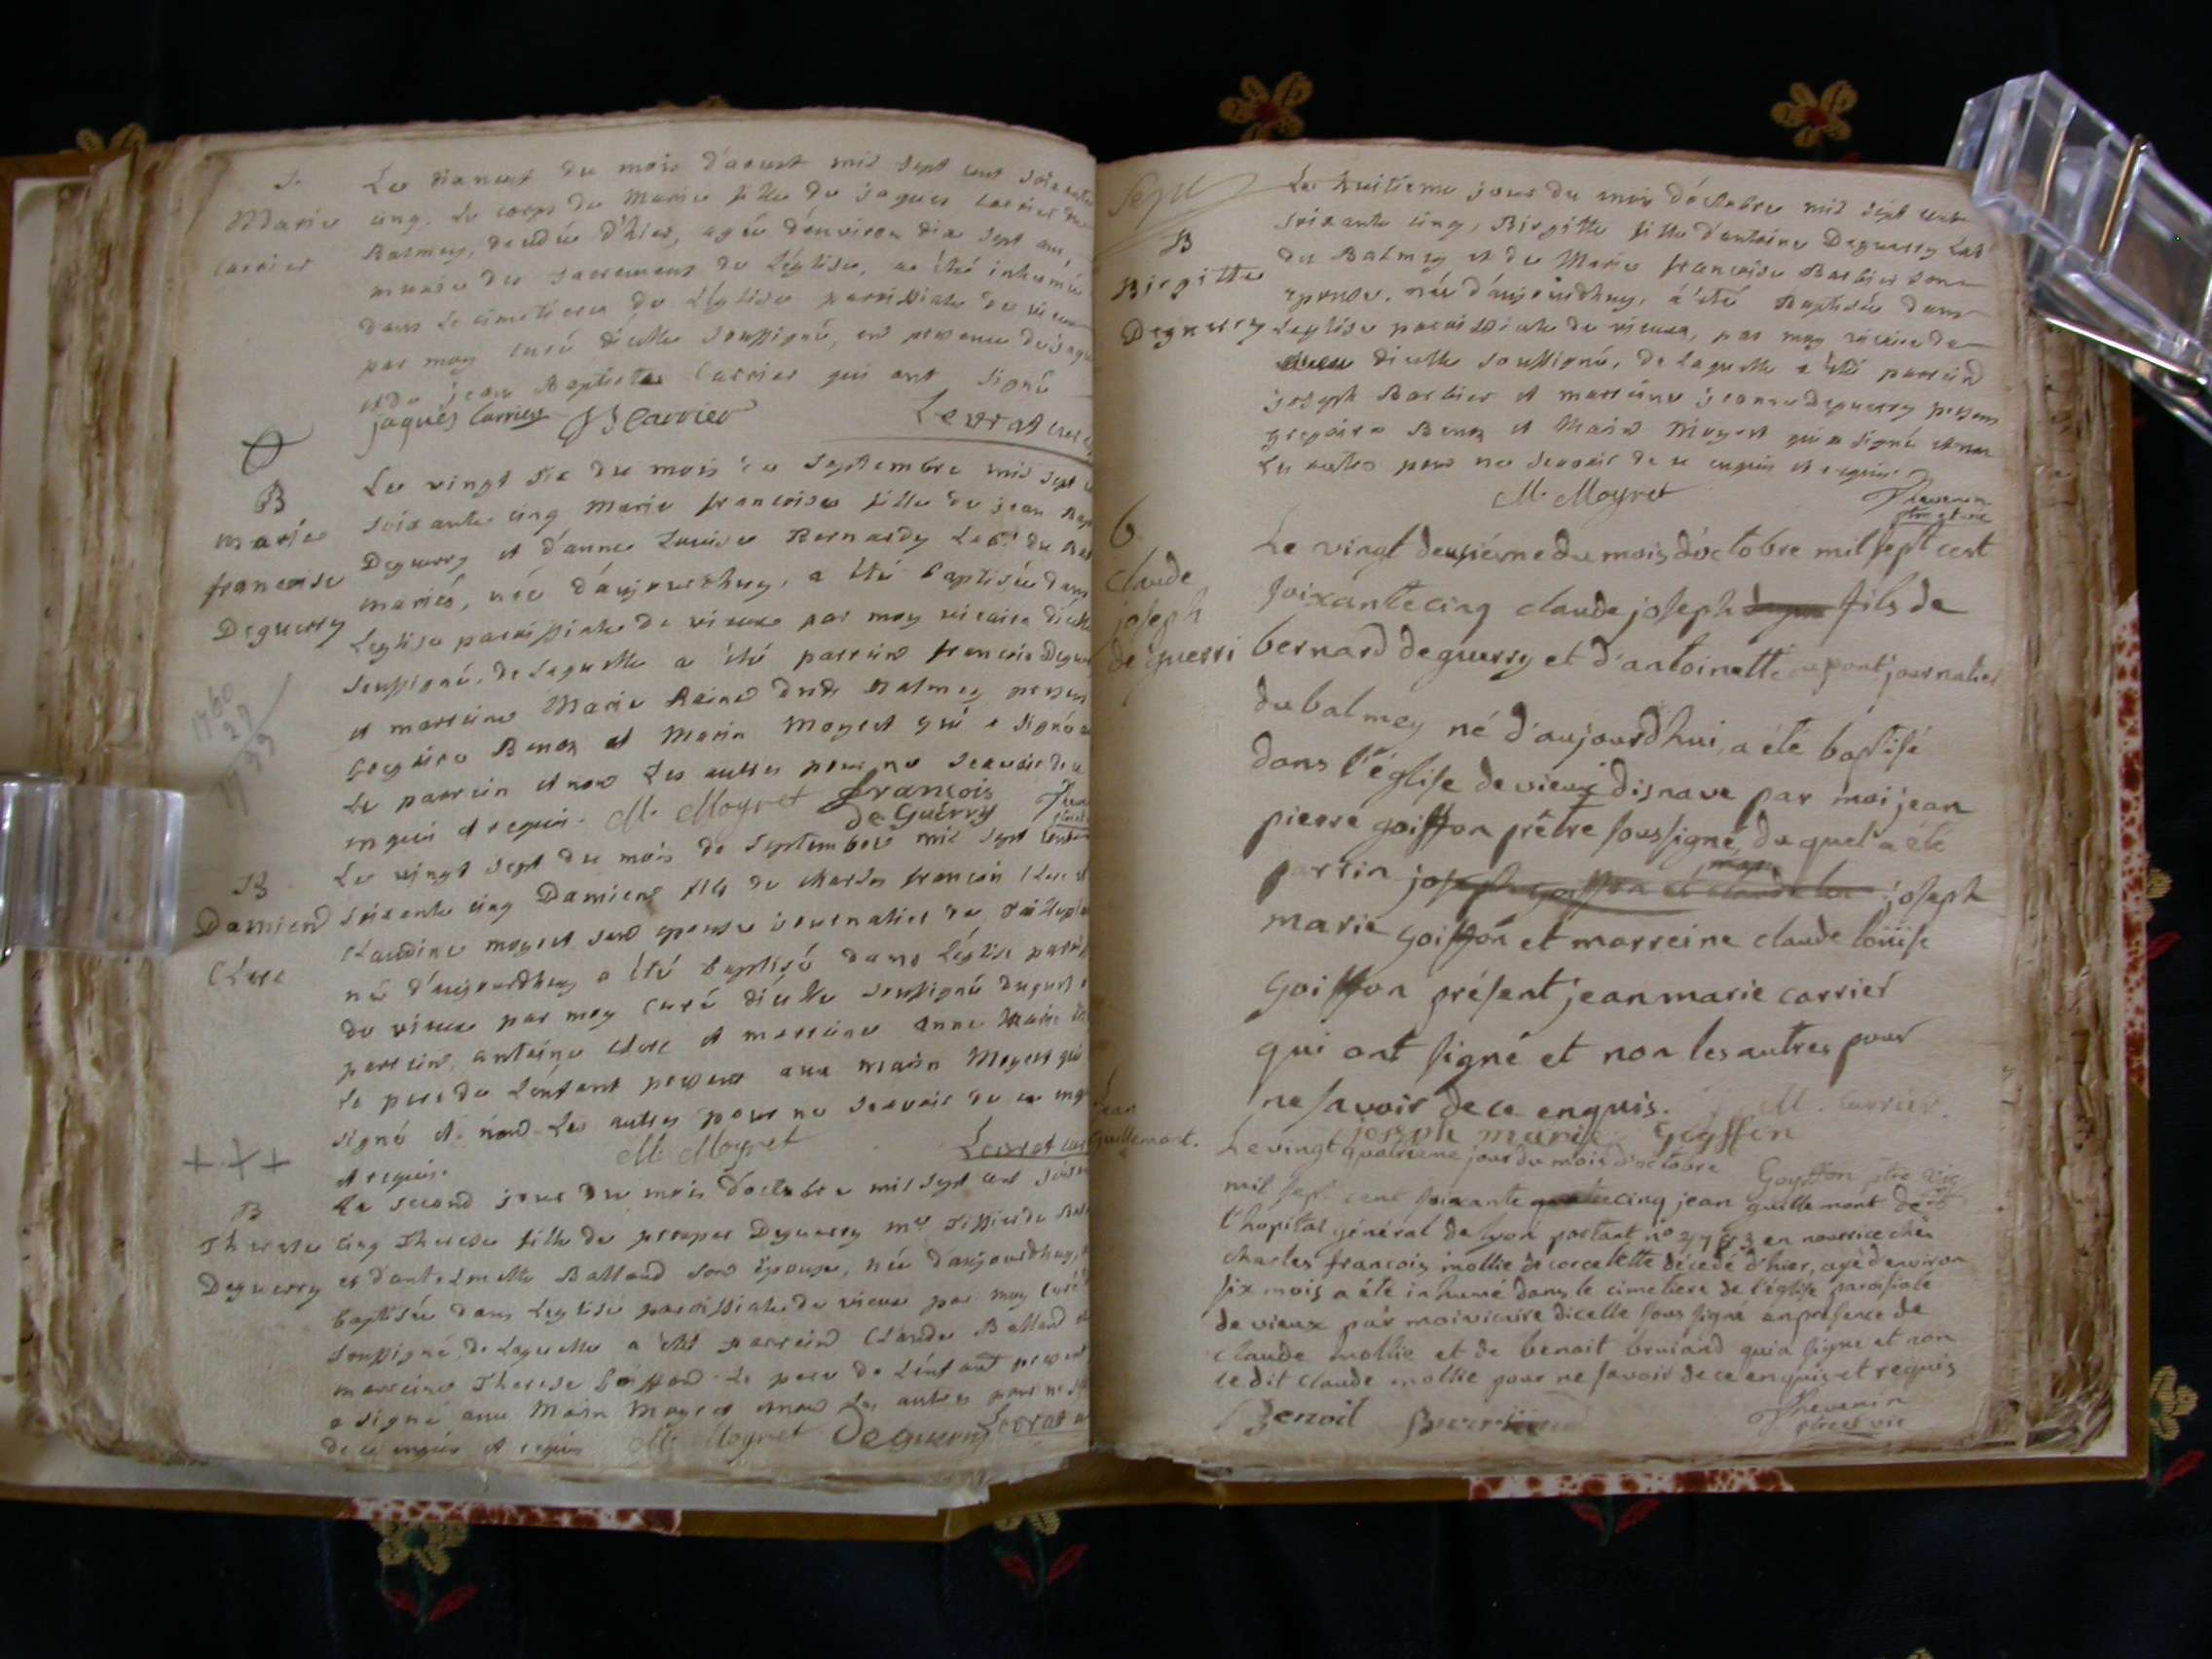 S.
Marie
Carrier
Le dix neuf du mois d'aoust mil sept cent soixante
cinq. Le corps de Marie fille de jaques Carrier du
Balmey, decedée d'hier, agée d'environ dix sept ans,
munie des sacremens de L'église, a été inhumée
dans Le cimetiere de L'église parroissiale de vieux
par moy curé d'icelle soussigné, en presence de jaques
et de jean Baptiste Carrier qui ont signé
jaques Carrier JB Carrier Levrat curé
B
marie
francoise
Deguerry
Le vingt six du mois de septembre mil sept
soixante cinq marie francoise fille de jean Bap
Deguerry et d'anne Louise Bernardy Lab. du Bal
mariés, née d'aujourdhuy, a été baptisée dans
Leglise paroissiale de vieux par moy vicaire d'icelle
soussigné, de Laquelle a été parrein francois Deguer
et marreine Marie Reine dudt Balmey presens
Gregoire Benoz et Marin Moyret qui a signé a
Le parrein et non Les autres pour ne scavoir de c
enquis et requis. M. Moyret francois
de Guerry
1760
27
1733
B
Damien
Clerc
Le vingt sept du mois de septembre mil sept cent
soixante cinq Damiens fils de charles francois Clerc et
Claudine moyret son epouse journalier de
né d'aujourdhuy a été baptisé dans L'église parois
de vieux par moy curé d'icelle soussigné duquel a
parrein antoine clerc et marreine anne marie
Le pere de L'enfant present avec marin Moyret qui
signé et non Les autres pour ne scavoir de ce enq
et requis. M. Moyret Levrat curé
+ X +
B
Therese
Deguerry
Le second jour du mois d'octobre mil sept cent soixan
cinq Therese fille de prosper Deguerry Mre Tissier du Bal
et d'antelmette Balland son épouse, née d'aujourdhuy,
baptisée dans Leglise paroissiale de vieux par moy curé
soussigné, de Laquelle a été parrein Claude Balland et
marreine Therese Goiffon. Le pere de L'enfant present
a signé avec Marin Moyret et non Les autres pour ne s
de ce enquis et requis M. Moyret Deguerry Levrat cu
Sept
B
Birgitte
Deguerry
Le huitieme jour du mois d'octobre mil sept cent
soixante cinq, Birgitte fille d'antoine Deguerry Lab
du Balmey et de Marie francoise Barbier son
epouse, née d'aujourdhuy, a été Baptisée dans
Leglise paroissiale de vieux, par moy vicaire de
d'icelle soussigné, de Laquelle a été parrein
joseph Barbier et marreine jeanne deguerry presens
gregoire Benoz et Marin Moyret qui a signé et non
Les autres pour ne scavoir de ce enquis et requis
M. Moyret Thevenin
ptre et vic
6
claude
joseph
de guerri
Le vingt deuxiéme du mois d'octobre mil sept cent
soixante cinq claude joseph fils de
bernard deguerry et d'antoinette dupont journalier
du balmey né d'aujourd'hui, a été baptisé
dans l'église de vieux disnave par moi jean
pierre goiffon prêtre soussigné, du quel a été
parrin joseph goiffon et claude joseph
marie goiffon et marreine claude loüise
Goiffon présent jean marie carrier
qui ont signé et non les autres pour
ne savoir de ce enquis. J M. Carrier.
joseph marie Goyffon
Goyffon ptre vic
jean
guillemont.
Le vingt quatrieme jour du mois d'octobre
mil sept cent soixante cinq jean guillemont de
l'hopital général de lyon portant no 2783 en nourrice chés
charles francois mollie de corcelette décédé d'hier, agé d'environ
six mois a été inhumé dans le cimetiere de l'église paroissiale
de vieux par moi vicaire d'icelle sous signé en présence de
claude mollie et de benoit bruiand qui a signé et non
le dit claude mollie pour ne savoir de ce enquis et requis
Benoit Thevenin
ptre et vic